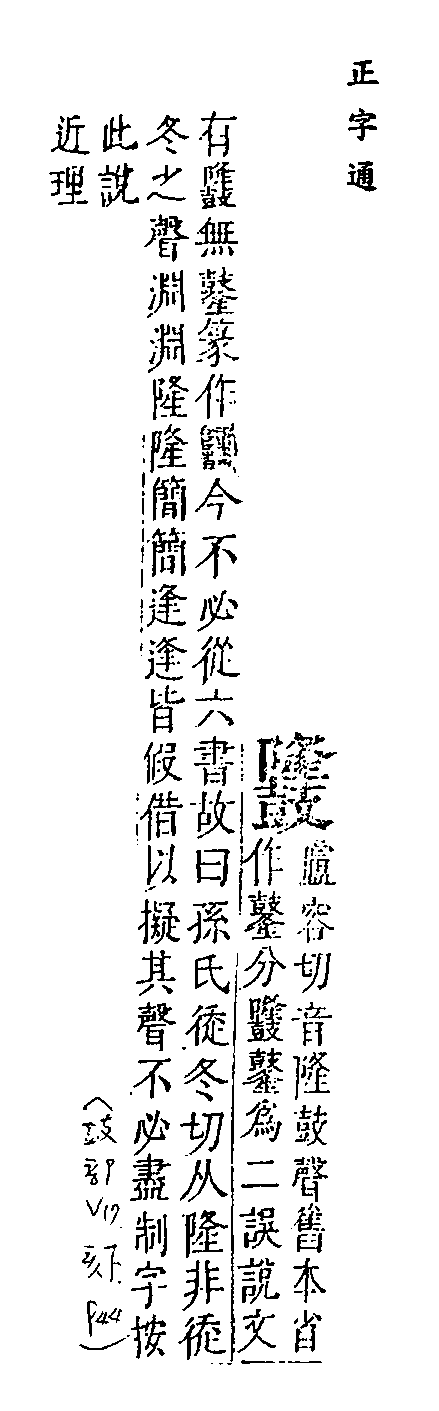 正字通
盧容切音隆鼓聲舊本省
作分爲二誤說文
有無篆作今不必從六書故曰孫氏徒冬切从隆非徒
冬之聲淵淵隆隆簡簡逢逢皆假借以擬其聲不必盡制字按
此說
近理
(鼓部V17亥下P44)